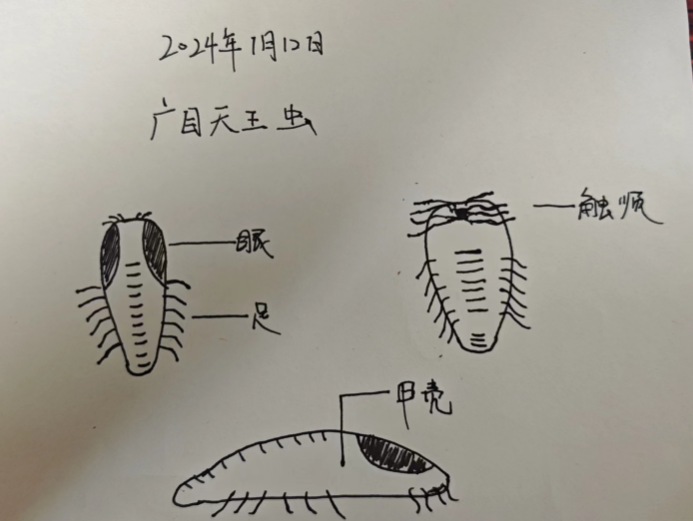 2024年1月12日
广目天王虫
眼
足
触须
甲壳